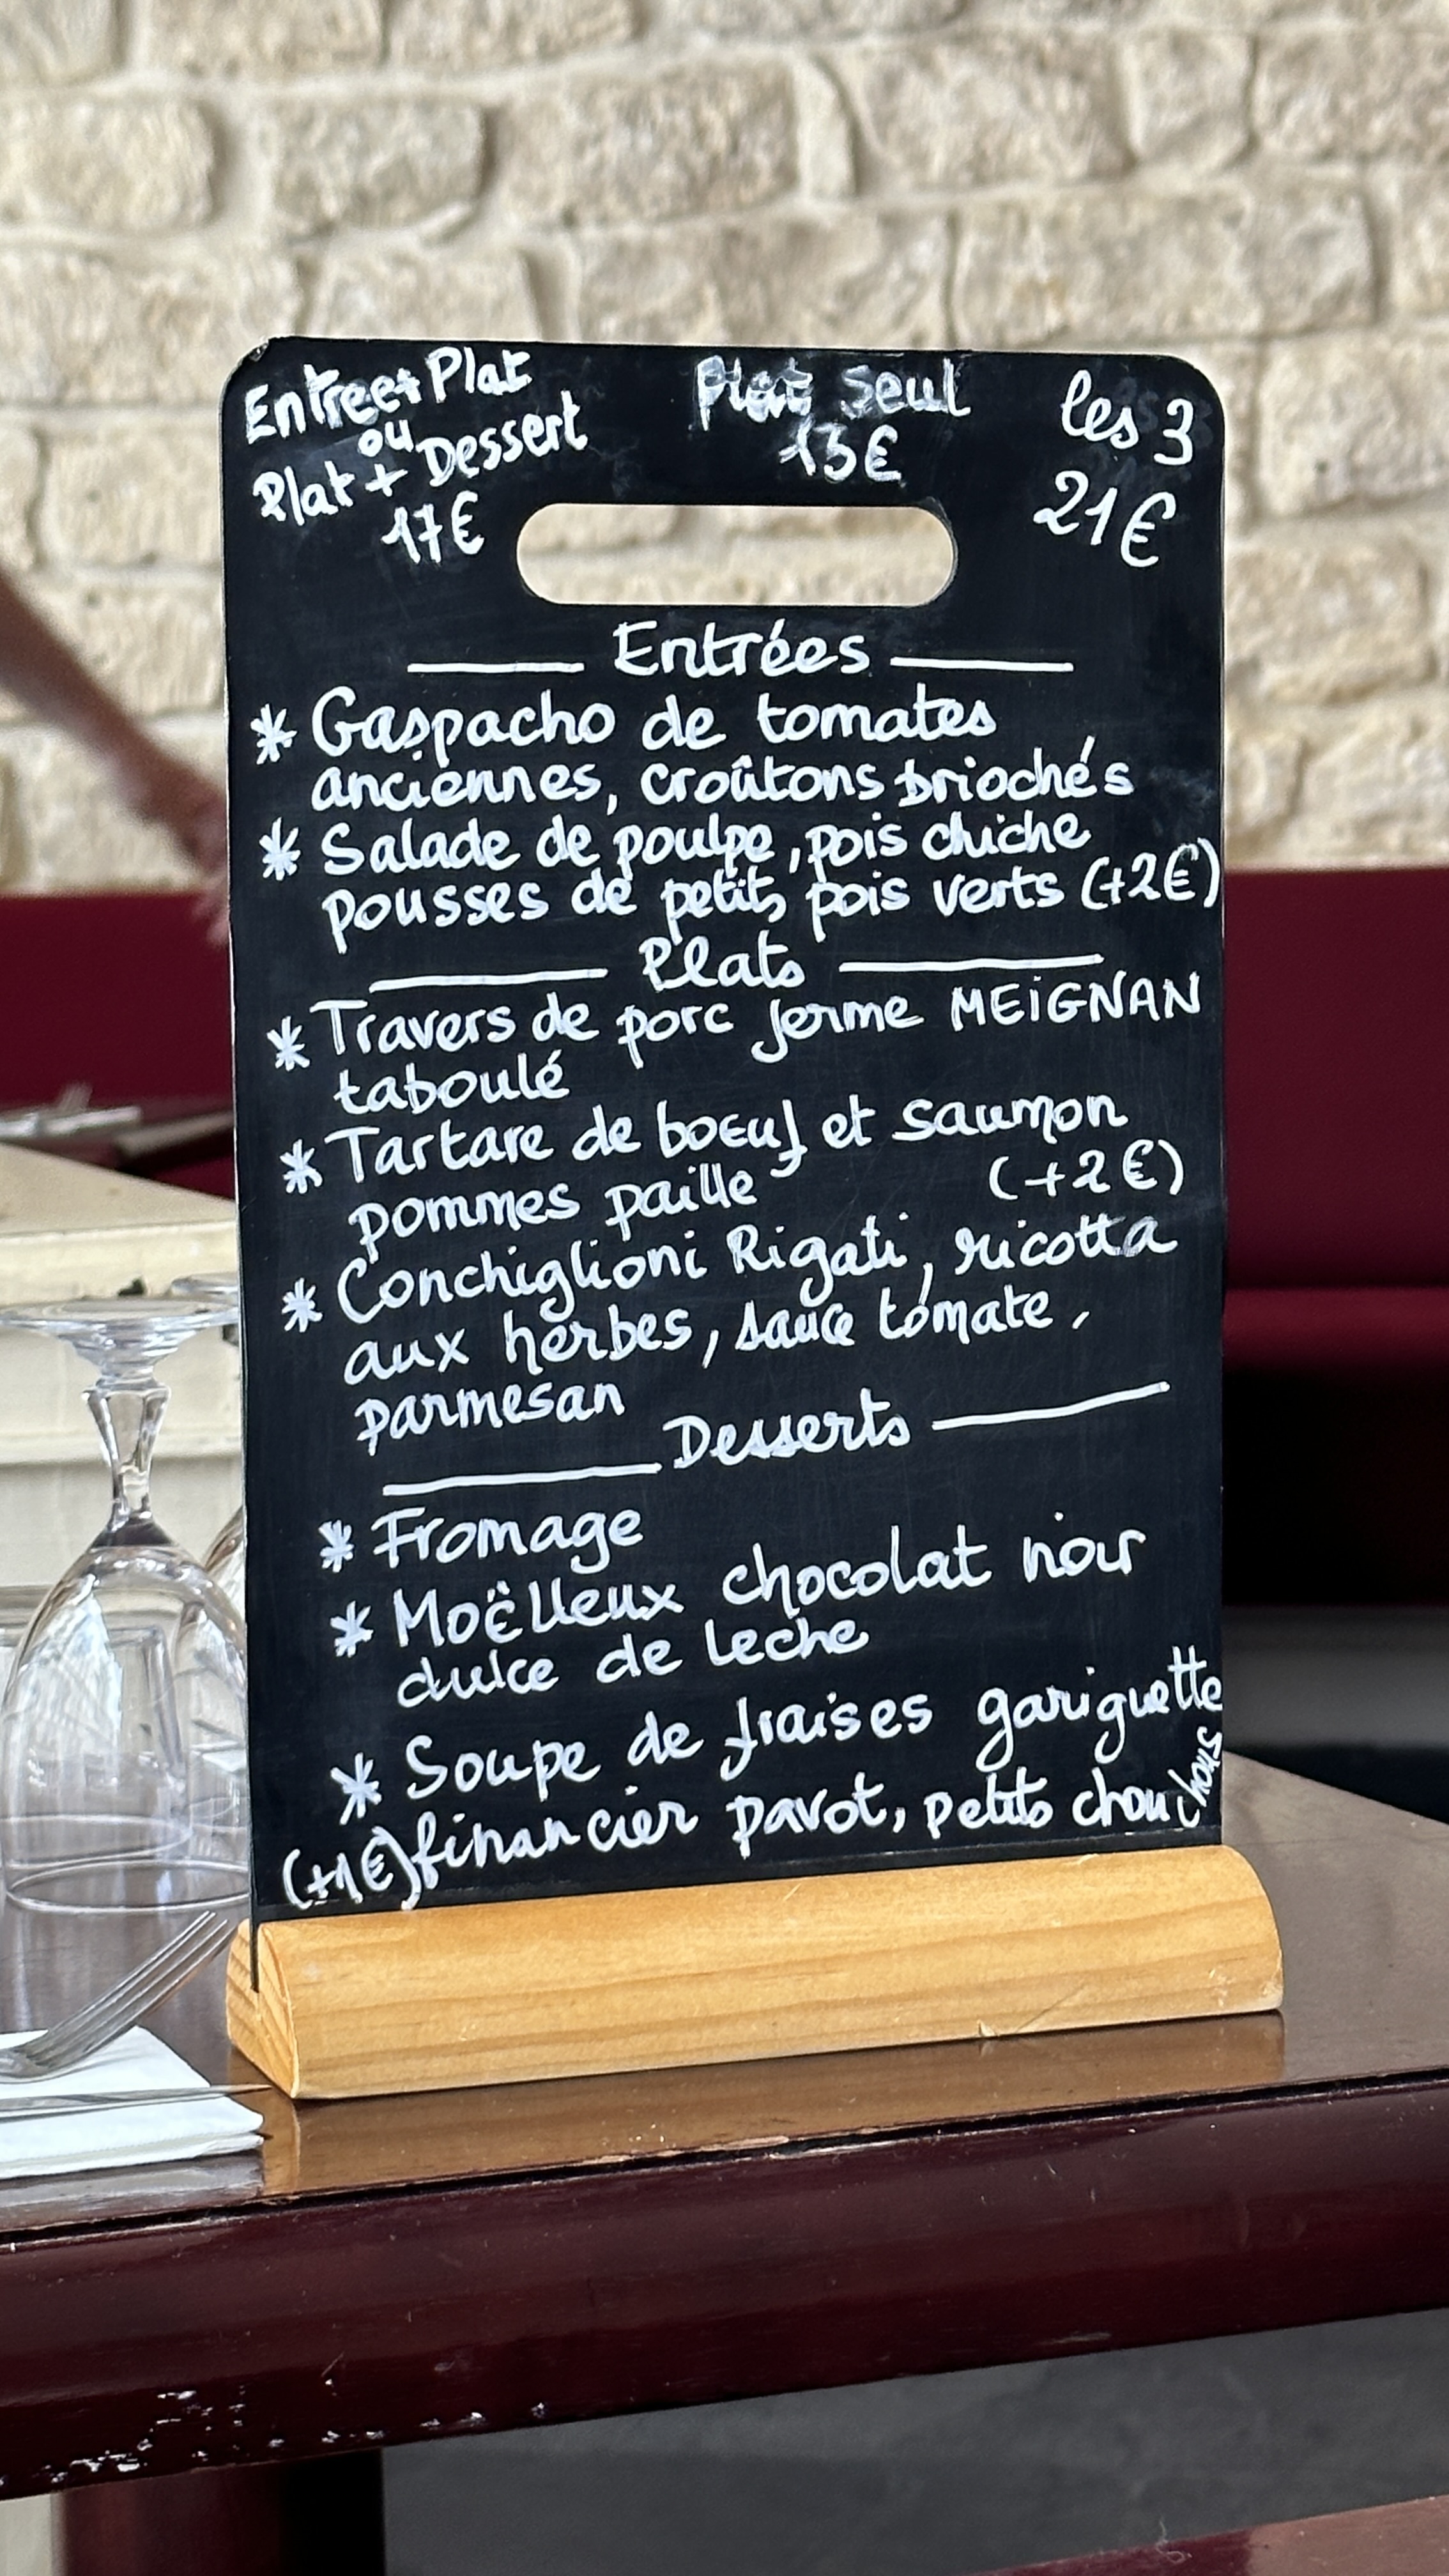 Entree+Plat
ou
Plat + Dessert
17€
Plat seul
13€
les 3
21€
Entrées
* Gaspacho de tomates
anciennes, croûtons briochés
* Salade de poulpe, pois chiche
pousses de petits pois verts (+2€)
Plats
* Travers de porc ferme MEiGNAN
taboulé
* Tartare de boeuf et saumon
pommes paille (+2€)
* Conchiglioni Rigati, ricotta
aux herbes, sauce tomate,
parmesan
Desserts
* Fromage
* Moëlleux chocolat noir
dulce de leche
* Soupe de fraises gariguette
(+1€) financier pavot, petits chouchous